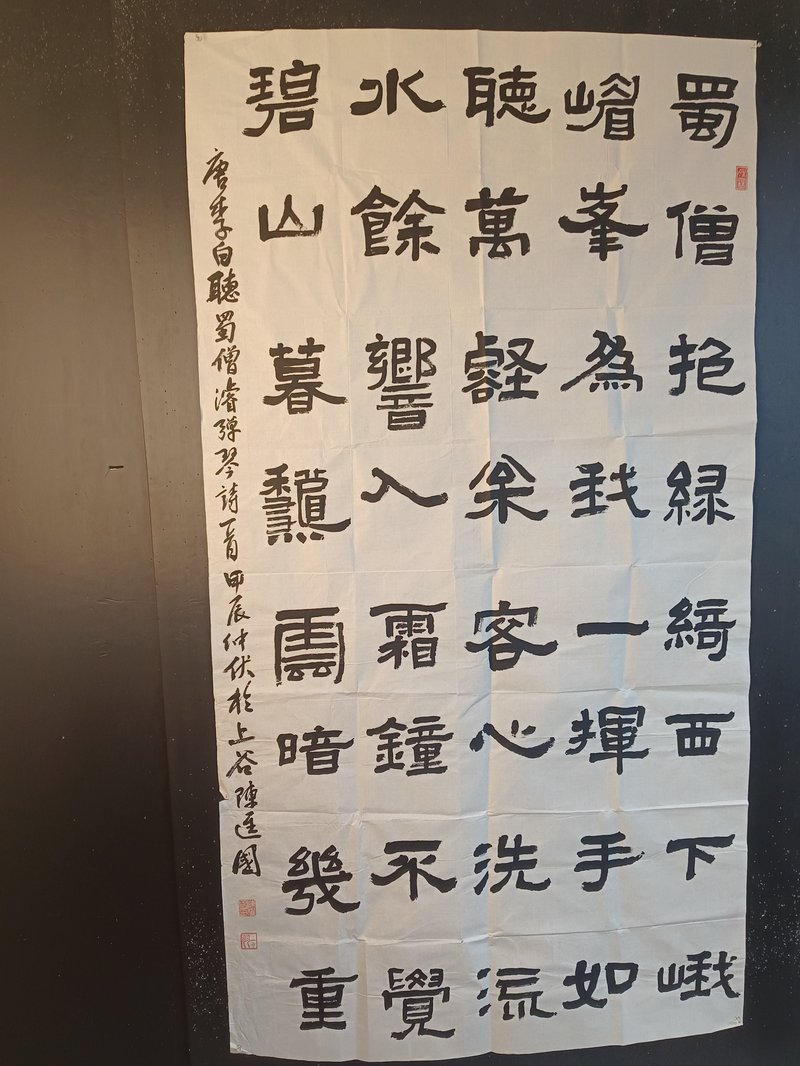 蜀僧抱綠綺西下峨
嵋峯為我一揮手如
聽萬壑枀客心洗流
水餘響入霜鐘不覺
碧山暮龝雲暗幾重
唐李白聽蜀僧濬彈琴詩一首甲辰仲伏於上谷陳進國